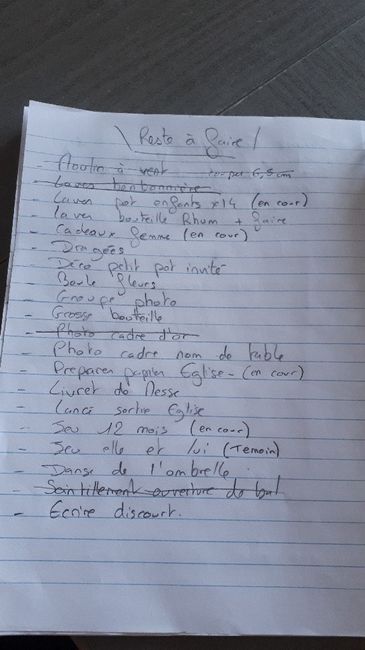 \ Reste à faire /
- Moulin à vent couper 6,5 cm
- Laver bonbonnière
- Laver pot enfants x14 (en cour)
- laver bouteille Rhum + faire
- Cadeaux femme (en cour)
- Dragées
- Déco petit pot invité
- Boule fleurs
- Groupe photo
- Grosse bouteille
- Photo cadre d'or
- Photo cadre nom de table
- Preparer papier Eglise - (en cour)
- Livret de Messe
- Lancé sortie Eglise
- Jeu 12 mois (en cour)
- Jeu elle et lui (Temoin)
- Danse de l'ombrelle
- ouverture de bal
- Ecrire discourt.